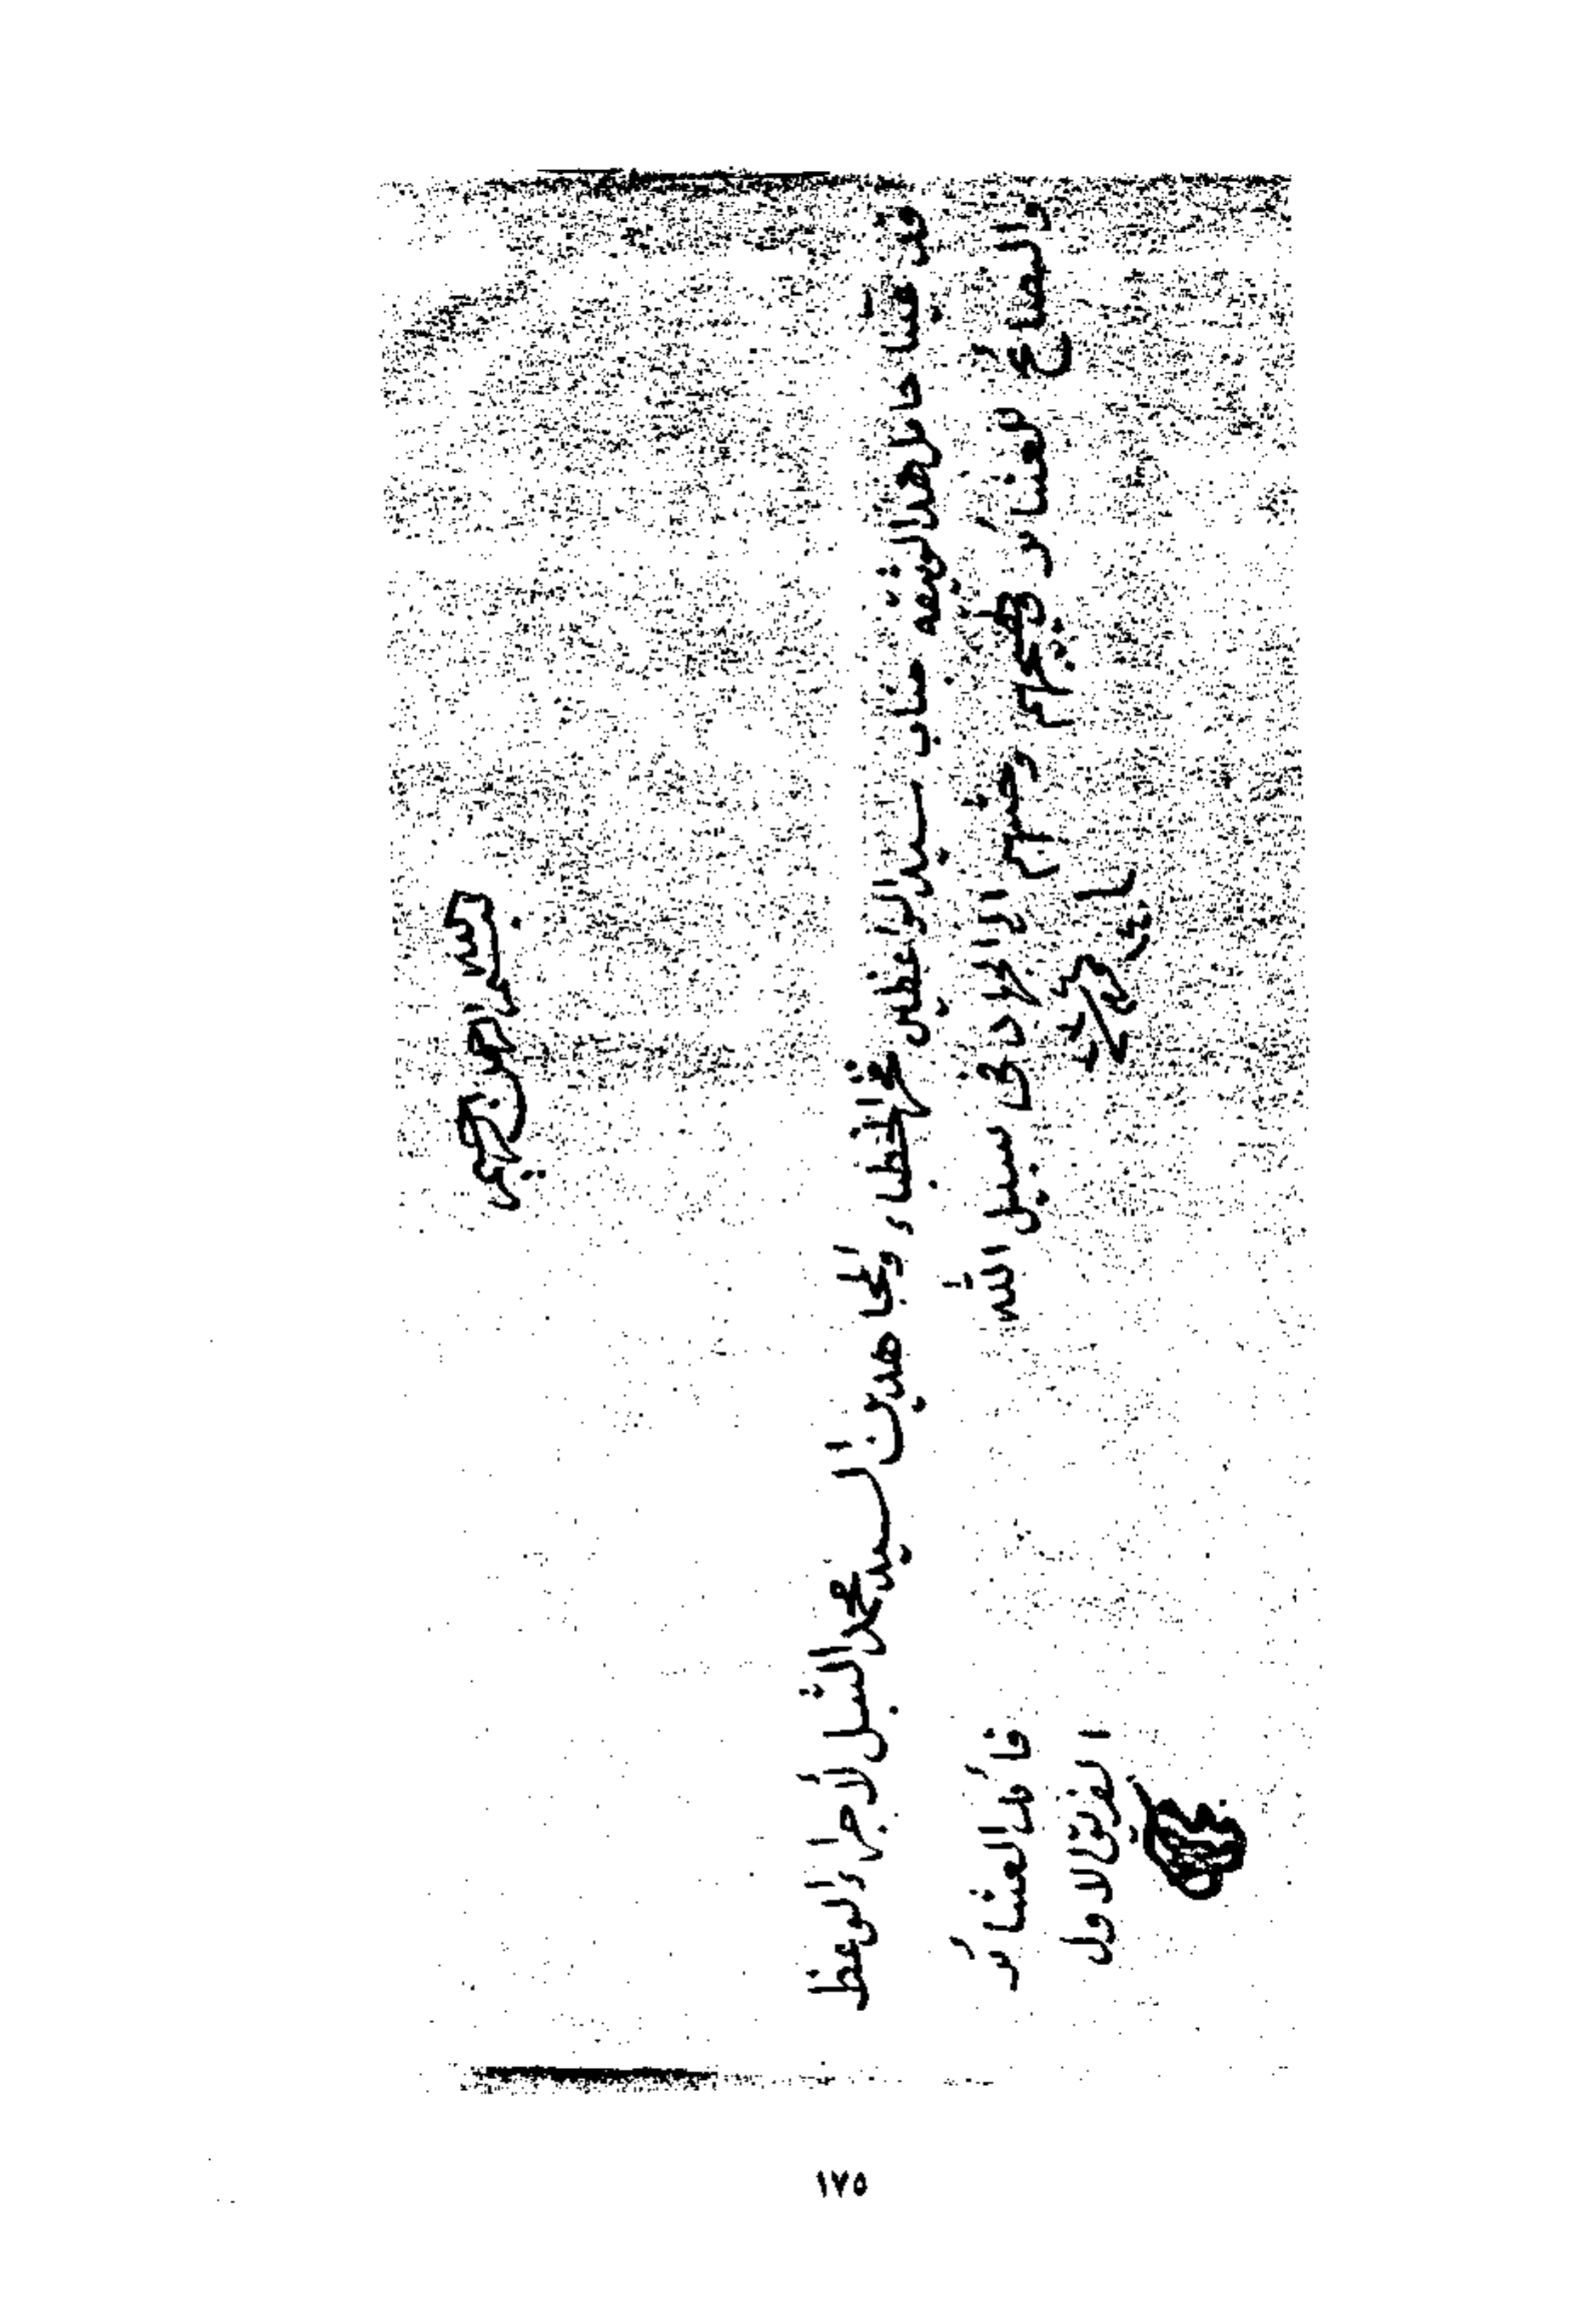 بسم الله الرحمن الرحيم
قد عينا حامل هذا الوثيقه جناب سيد الواعظين فخر الخطباء والمجاهدين السيد محمد الشبل لأجراء الوعظ
والنصائح للعشائر وتهييجهم وحثهم الى الجهاد فى سبيل الله
قائد العشائر
الفريق الاول
١٧٥